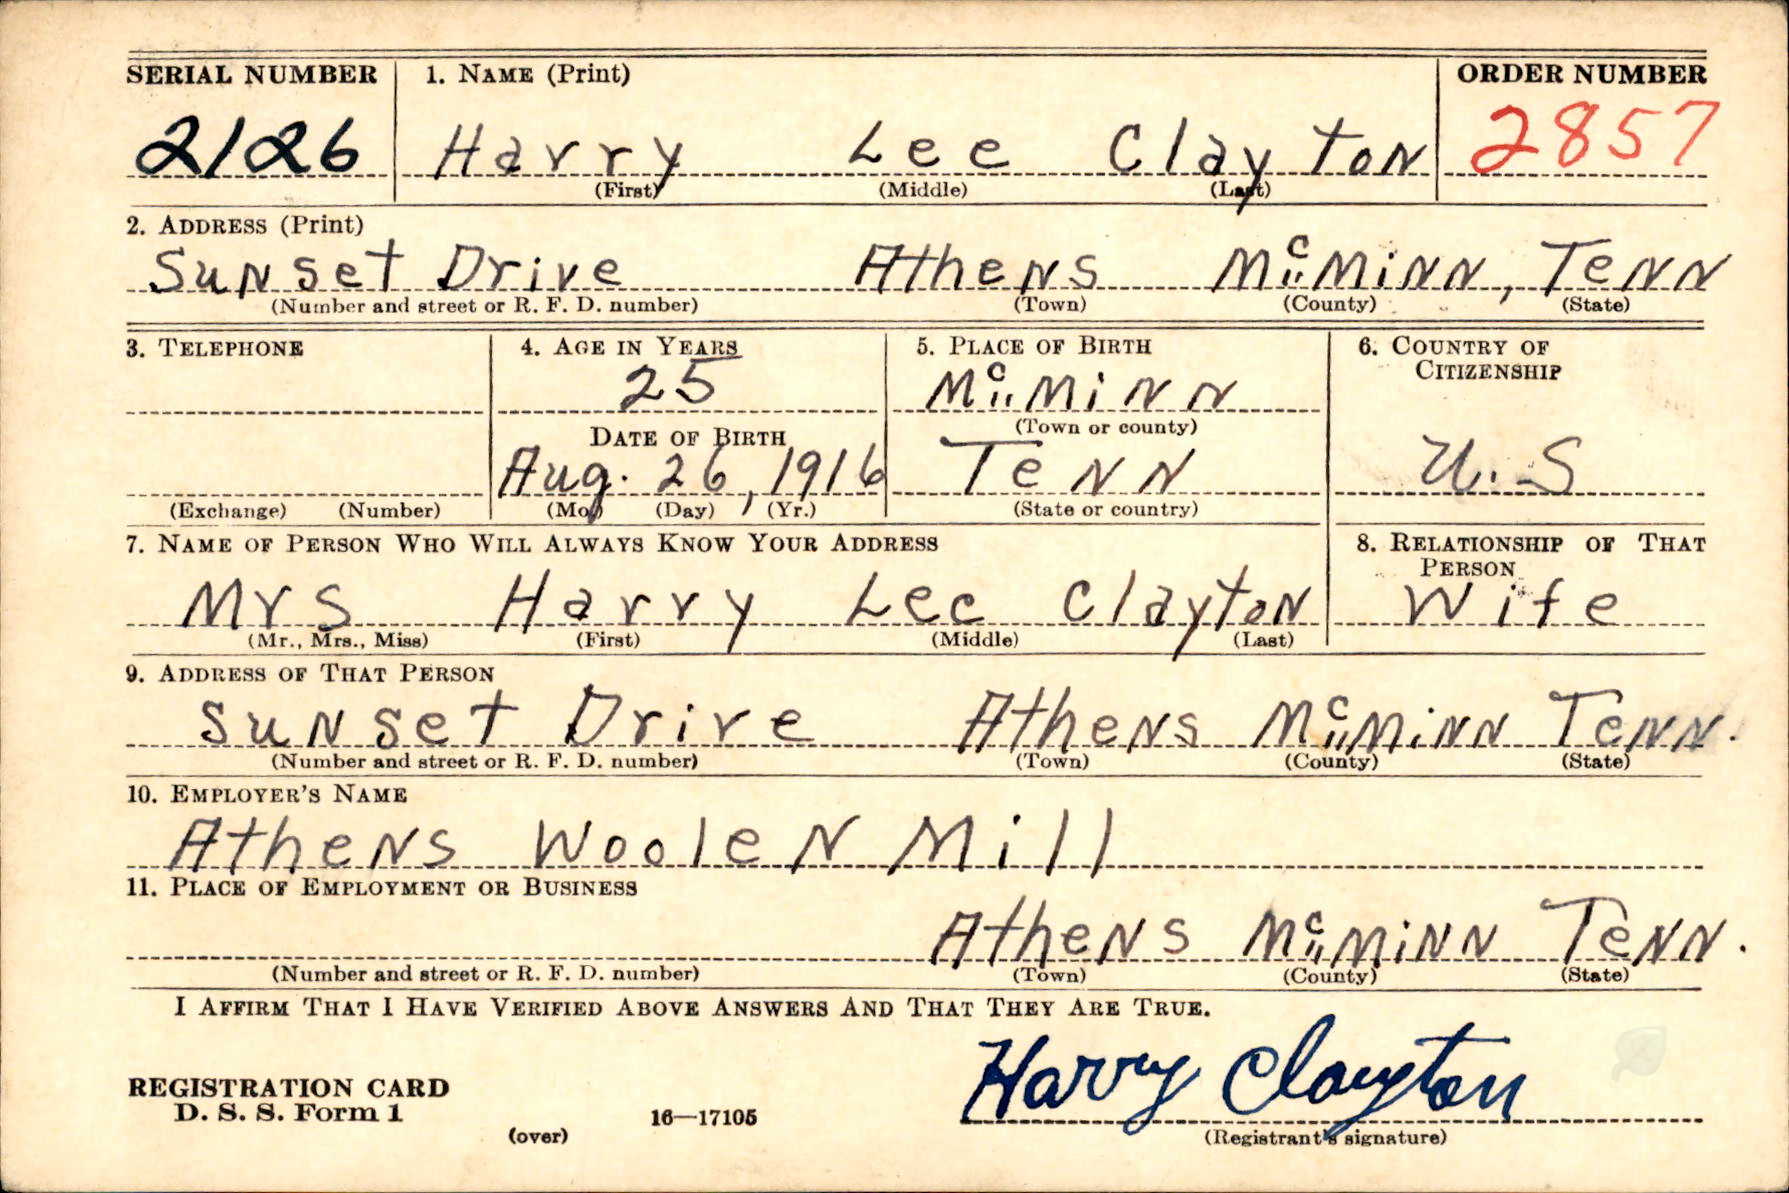 SERIAL NUMBER 1. NAME (Print) ORDER NUMBER
2126 Harry Lee Clayton 2857
(First) (Middle) (Last)
2. ADDRESS (Print)
Sunset Drive Athens McMinn, Tenn
(Number and street or R. F. D. number) (Town) (County) (State)
3. TELEPHONE 4. AGE IN YEARS 5. PLACE OF BIRTH 6. COUNTRY OF CITIZENSHIP
25 McMinn
DATE OF BIRTH (Town or county)
Aug. 26, 1916 Tenn U.S
(Exchange) (Number) (Mo.) (Day) (Yr.) (State or country)
7. NAME OF PERSON WHO WILL ALWAYS KNOW YOUR ADDRESS 8. RELATIONSHIP OF THAT PERSON
Mrs Harry Lee Clayton Wife
(Mr., Mrs., Miss) (First) (Middle) (Last)
9. ADDRESS OF THAT PERSON
Sunset Drive Athens McMinn Tenn.
(Number and street or R. F. D. number) (Town) (County) (State)
10. EMPLOYER'S NAME
Athens Woolen Mill
11. PLACE OF EMPLOYMENT OR BUSINESS
Athens McMinn Tenn.
(Number and street or R. F. D. number) (Town) (County) (State)
I AFFIRM THAT I HAVE VERIFIED ABOVE ANSWERS AND THAT THEY ARE TRUE.
Harry Clayton
REGISTRATION CARD
D. S. S. Form 1 16—17105
(over) (Registrant's signature)